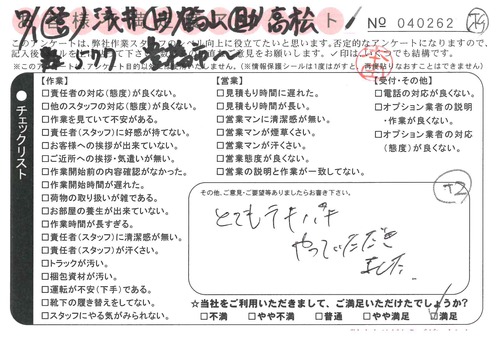 No 040262
このアンケートは、弊社作業スタッフのレベル向上に役立てたいと思います。否定的なアンケートになりますので、
【作業】
□責任者の対応(態度)が良くない。
□他のスタッフの対応(態度)が良くない。
□作業を見ていて不安がある。
□責任者(スタッフ)に好感が持てない。
□お客様への挨拶が出来ていない。
□ご近所への挨拶・気遣いが無い。
□作業開始前の内容確認がなかった。
□作業開始時間が遅れた。
□荷物の取り扱いが雑である。
□お部屋の養生が出来ていない。
□作業時間が長すぎる。
□責任者(スタッフ)に清潔感が無い。
□責任者(スタッフ)が汗くさい。
□トラックが汚い。
□梱包資材が汚い。
□運転が不安(下手)である。
□靴下の履き替えをしてない。
□スタッフにやる気がみられない。
【営業】
□見積もり時間に遅れた。
□見積もり時間が長い。
□営業マンに清潔感が無い。
□営業マンが煙草くさい。
□営業マンが汗くさい。
□営業態度が良くない。
□営業の説明と作業が一致してない。
【受付・その他】
□電話の対応が良くない。
□オプション業者の説明
・作業が良くない。
□オプション業者の対応
(態度)が良くない。
チェックリスト
その他、ご意見・ご要望等ありましたらお書き下さい。
+2
とてもテキパキ
やっていただき
ました。
☆当社をご利用いただきまして、ご満足いただけたでしょうか?
□不満 □やや不満 □普通 □やや満足 □満足